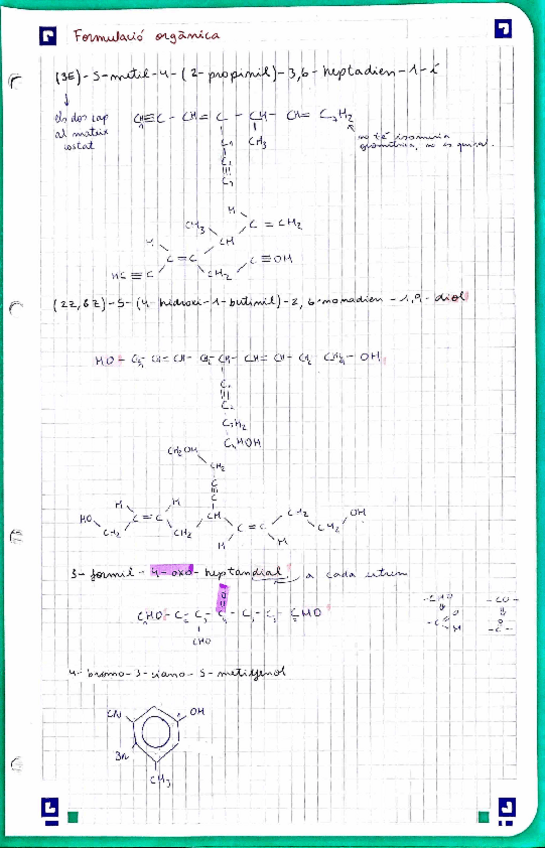 Formulació orgànica
(3E)-5-metil-4-(2-propinil)-3,6-heptadien-1-í
els dos cap
al mateix
costat
CH≡C - CH = C - CH - CH = C7H2
CH3
no té isomeria
geomètrica, no es quiral.
H
CH3
C = CH2
H
CH
C = C
C ≡ CH
HC ≡ C
CH2
(2Z,6Z)-5-(4-hidroxi-1-butinil)-2,6-nonadien-1,9-diol
HO - C - CH = CH - C - CH - CH = CH - CH2 - CH2 - OH
C
C
CH2
CH2OH
CH2OH
CH2
C
C
H
H
CH2
OH
HO
C = C
CH
CH2
CH2
C = C
CH2
H
H
3-formil-4-oxo-heptandial
a cada extrem
CHO - C - C - C - C - C - CHO
O
CHO
-CHO
-CO-
O
-C
H
O
-C-
4-bromo-3-ciano-5-metilfenol
CN
OH
Br
CH3